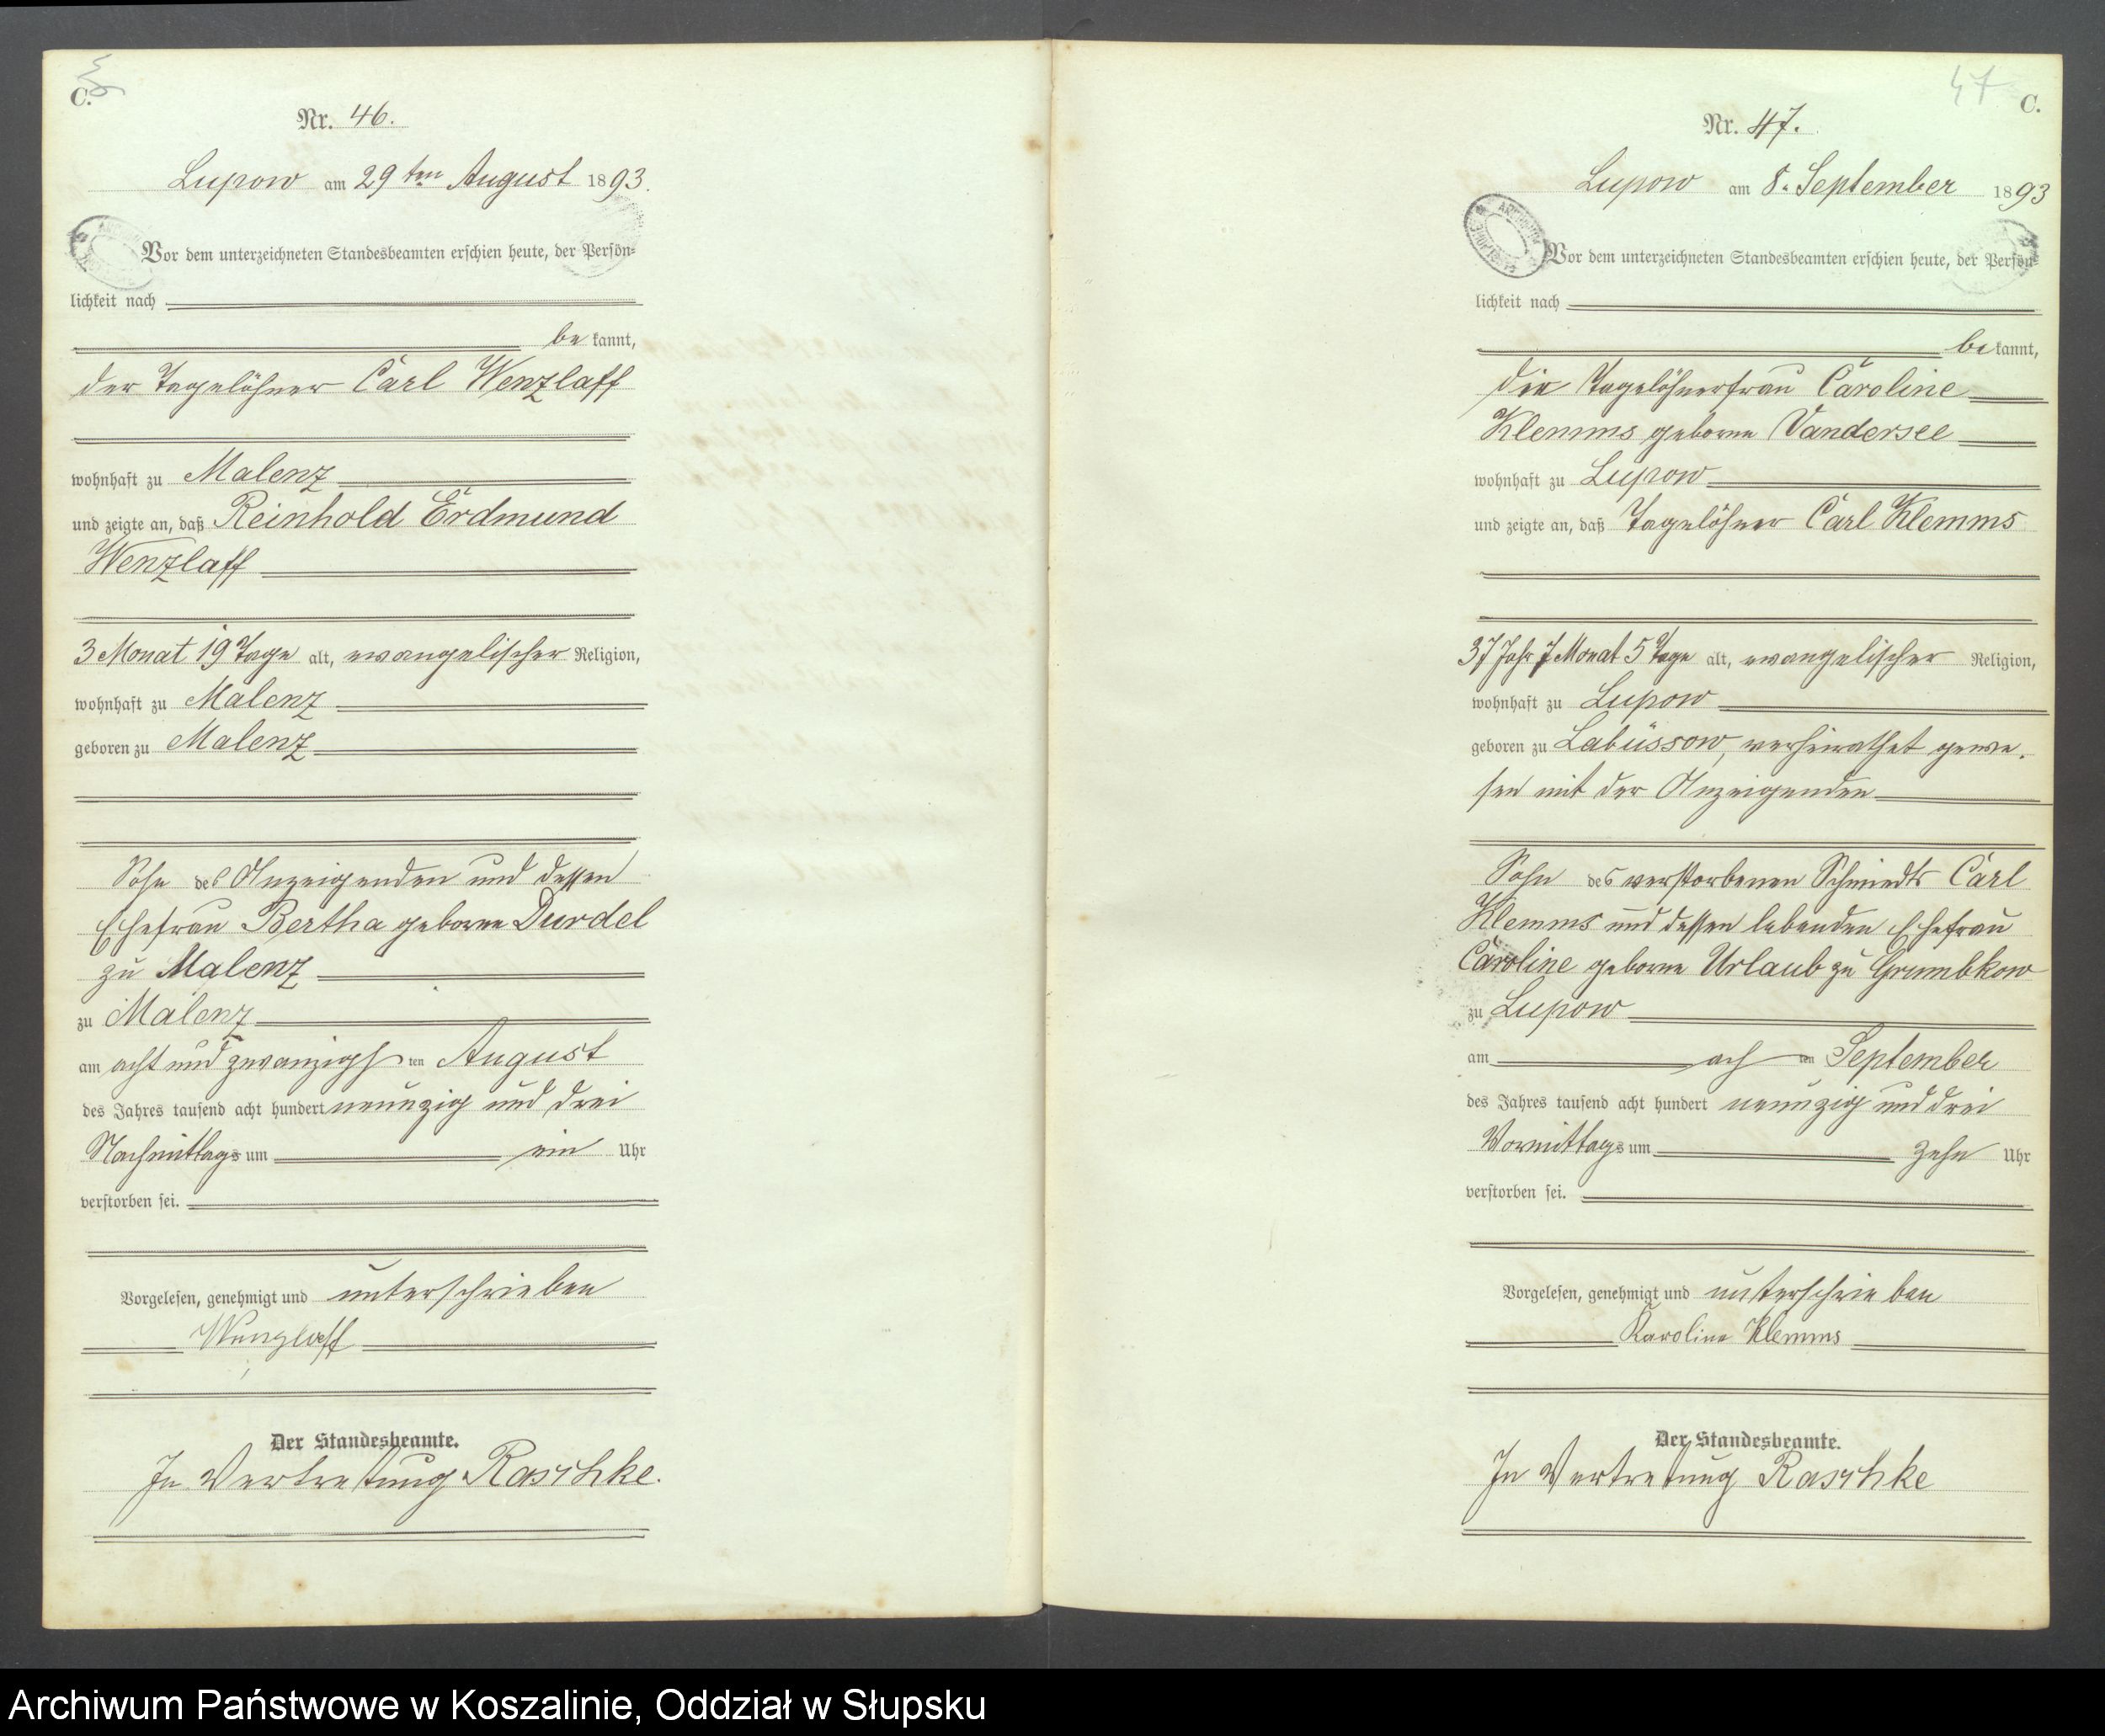 C.
Nr. 46.
Lupow am 29ten August 1893.
Vor dem unterzeichneten Standesbeamten erschien heute, der Persön-
lichkeit nach
be kannt,
der Tagelöhner Carl Wenzlaff
wohnhaft zu Malenz
und zeigte an, daß Reinhold Erdmund
Wenzlaff
3 Monat 19 Tage alt, evangelischer Religion,
wohnhaft zu Malenz
geboren zu Malenz
Sohn des Anzeigenden und dessen
Ehefrau Bertha geborne Durdel
zu Malenz
zu Malenz
am acht und zwanzigsten August
des Jahres tausend acht hundert neunzig und drei
Nachmittags um ein Uhr
verstorben sei.
Vorgelesen, genehmigt und unterschrieben
Wenzlaff
Der Standesbeamte.
In Vertretung Raschke.
47
C.
Nr. 47.
Lupow am 8. September 1893
Vor dem unterzeichneten Standesbeamten erschien heute, der Persön-
lichkeit nach
be kannt,
die Tagelöhnerfrau Caroline
Klemms geborne Vandersee
wohnhaft zu Lupow
und zeigte an, daß Tagelöhner Carl Klemms
37 Jahr 7 Monat 5 Tage alt, evangelischer Religion,
wohnhaft zu Lupow
geboren zu Labüssow, verheirathet gewe-
sen mit der Anzeigenden
Sohn des verstorbenen Schmiedts Carl
Klemms und dessen lebenden Ehefrau
Caroline geborne Urlaub zu Grumbkow
zu Lupow
am achten September
des Jahres tausend acht hundert neunzig und drei
Vormittags um zehn Uhr
verstorben sei.
Vorgelesen, genehmigt und unterschrieben
Karoline Klemms
Der Standesbeamte.
In Vertretung Raschke
Archiwum Państwowe w Koszalinie, Oddział w Słupsku